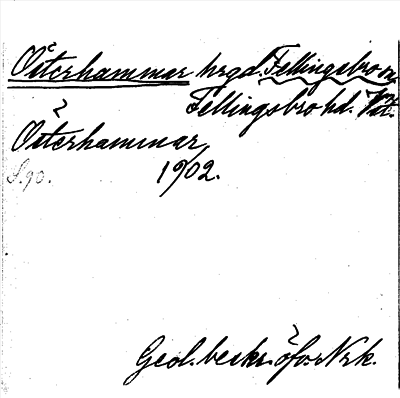 Österhammar hrgd. Fellingsbro sn.
Fellingsbro hd. Vstm.
Österhammar,
S. 90. 1902.
Geol. beskr. öfv. Nrk.